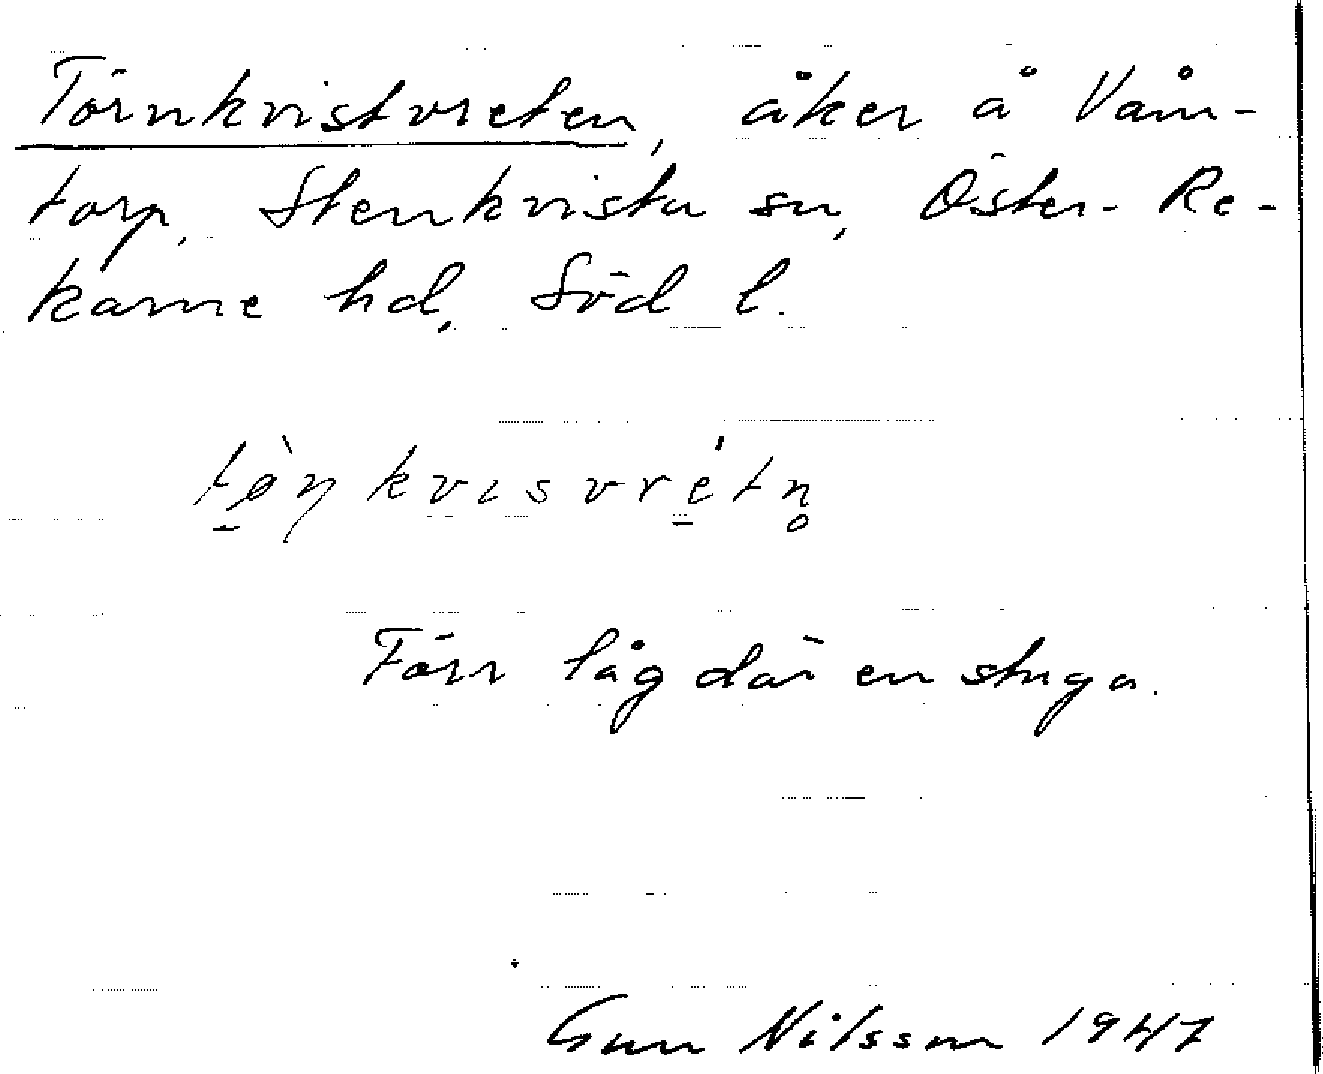 Törnkvistvreten, åker å Våm-
torp, Stenkvista sn, Öster-Re-
karne hd, Söd l.
tø̀ṇkvisvrétn̥
Förr låg där en stuga.
Gun Nilsson 1947